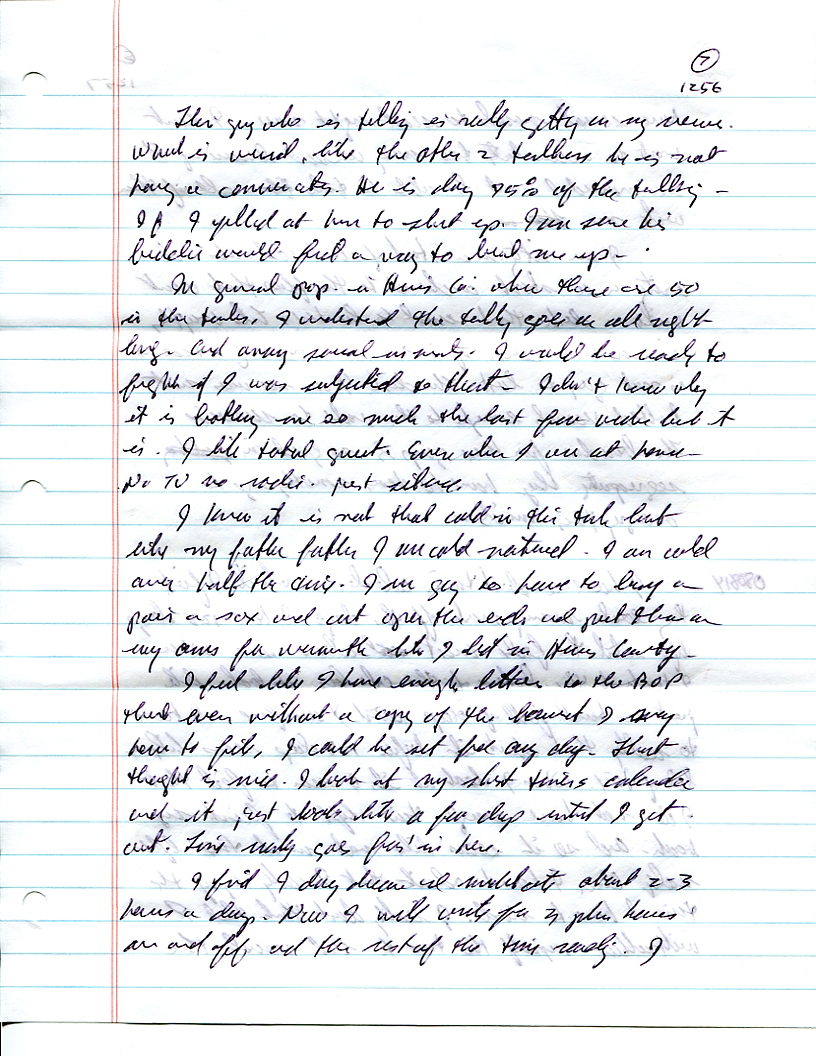 7
1256
This guy who is talking is really getting on my nerves.
What is weird, like the other 2 talkers he is not
having a conversation. He is doing 95% of the talking -
If I yelled at him to shut up. I am sure his
buddie would find a way to beat me up -
In general pop. in Hinds Co. when there are 50
in the tanks, I understand the talking goes on all night
long. And many sexual insults. I would be ready to
fight if I was subjected to that - I don't know why
it is bothing me so much the last few weeks but it
is. I like total quiet. Even when I am at home -
No TV no radio. just silence.
I know it is not that cold in this tank but
like my father father I am cold natured. I am cold
over half the time. I'm going to have to buy a
pair a sox and cut open the ends and put them on
my arms for warmth like I did in Hinds County -
I feel like I have enough letters to the BOP
that even without a copy of the I
have to file, I could be set free any day - That
thought is nice. I look at my short timers calendar
and it just looks like a few days until I get
out. Time really goes fast in here.
I find I day dream and meditate about 2-3
hours a day. Now I will write for 3 plus hours
on and off and the rest of the time reading. I